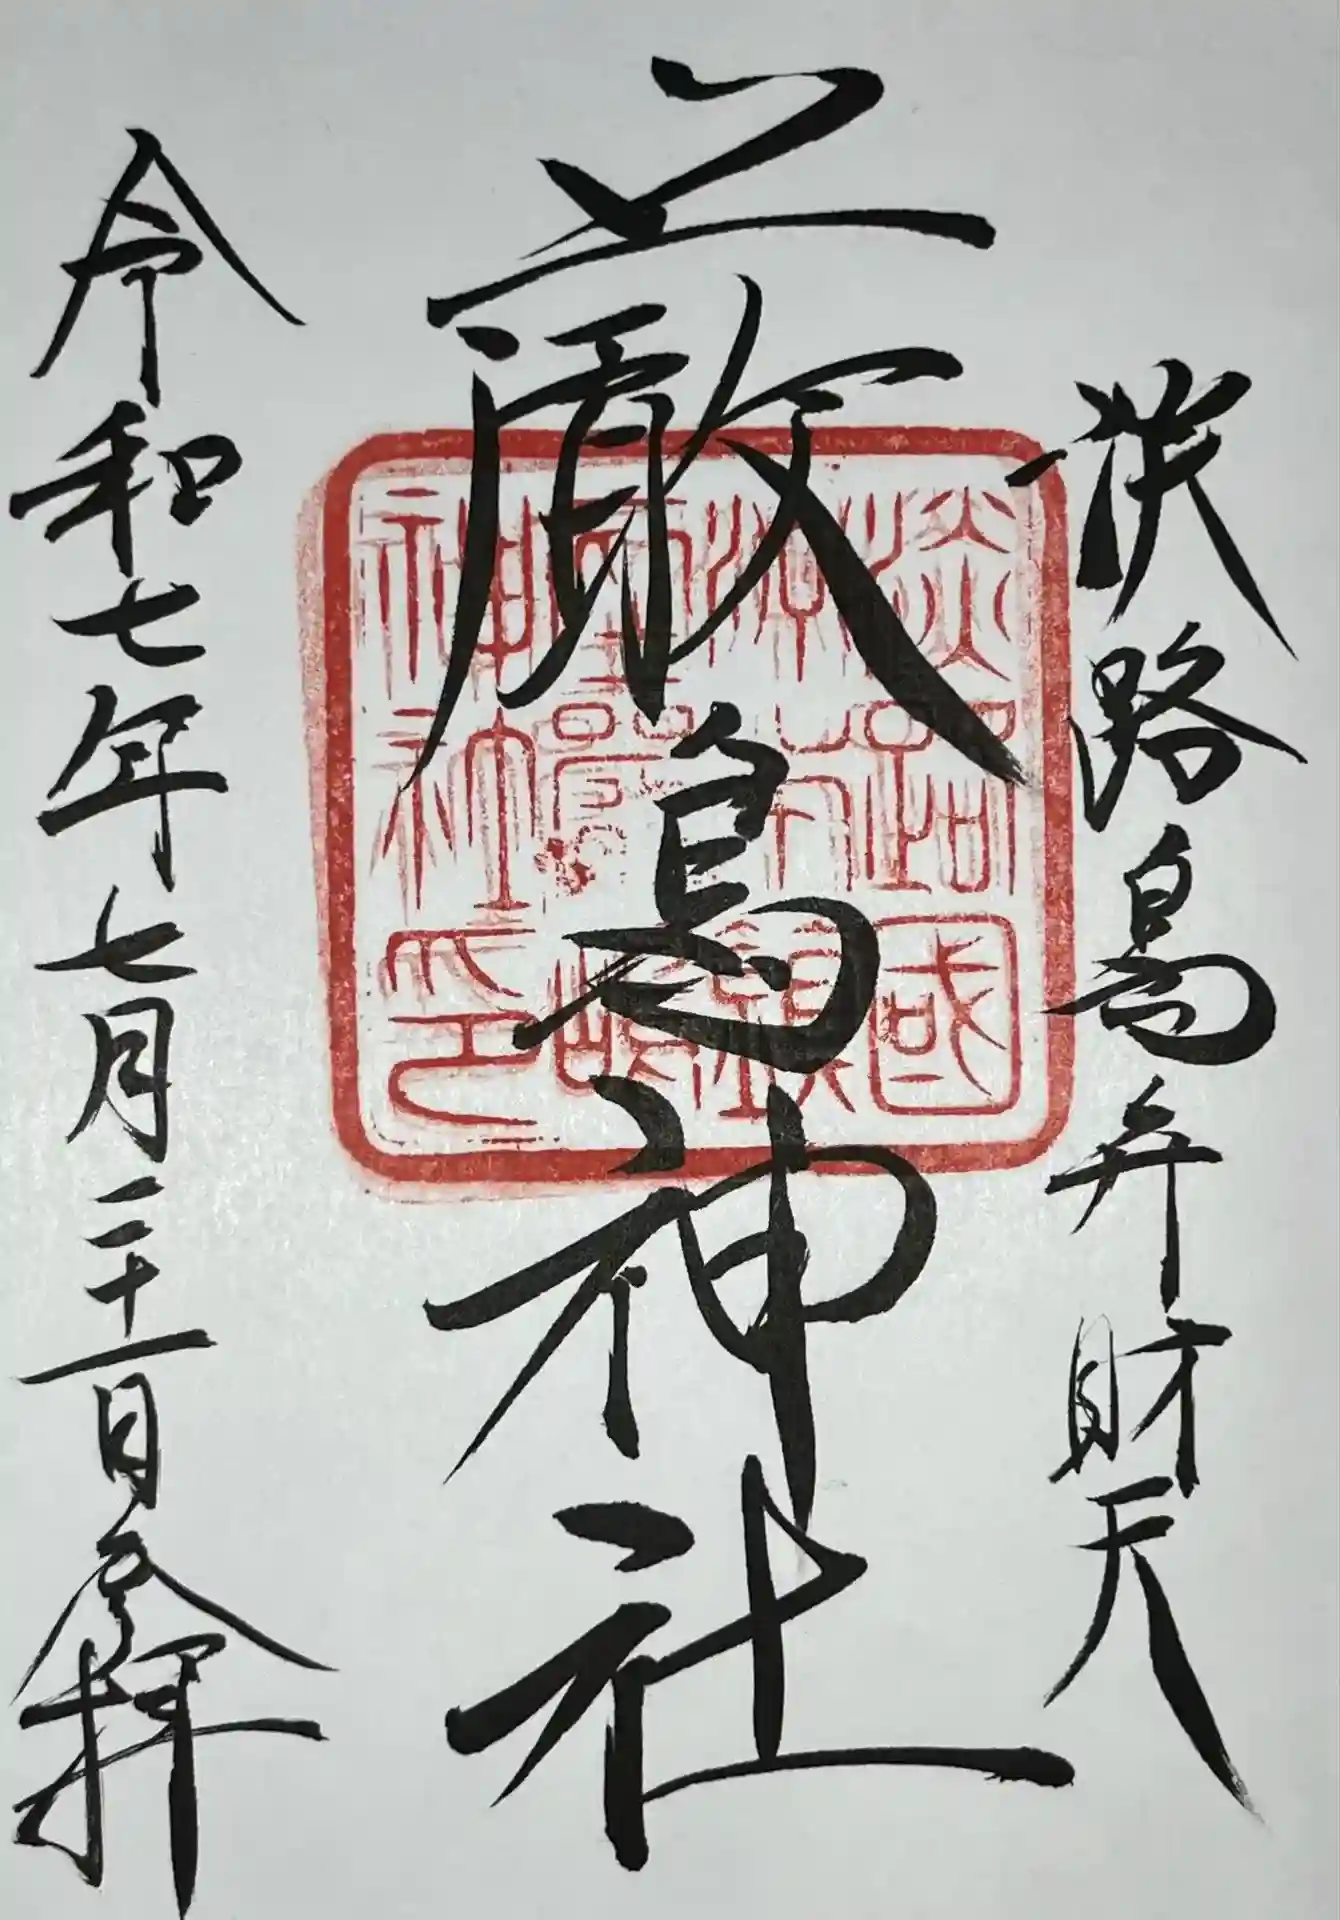 淡路島弁財天
厳島神社
令和七年七月二十一日参拝